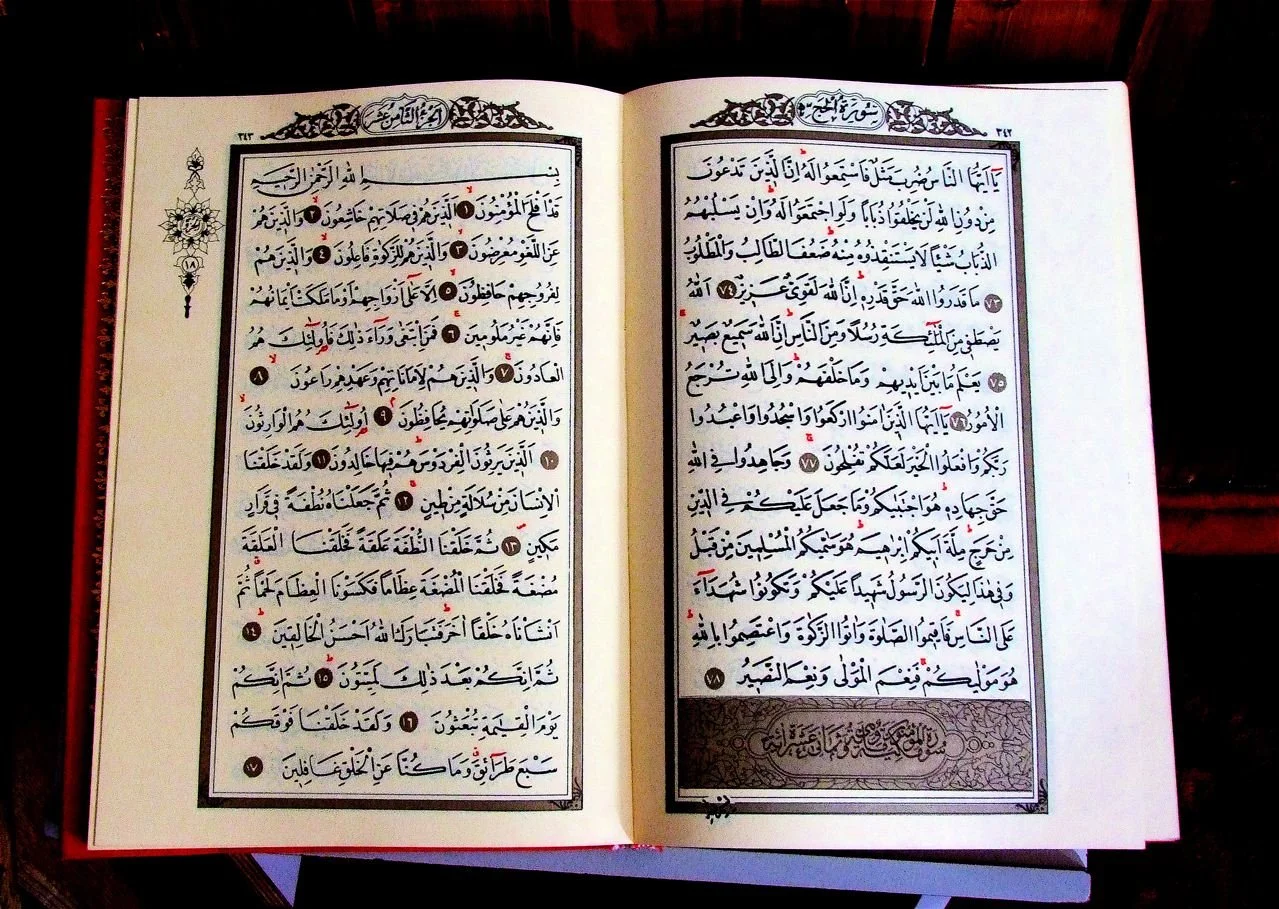 سورة الحج
٣٤٢
يَا أَيُّهَا النَّاسُ ضُرِبَ مَثَلٌ فَاسْتَمِعُوا لَهُ إِنَّ الَّذِينَ تَدْعُونَ
مِنْ دُونِ اللهِ لَنْ يَخْلُقُوا ذُبَابًا وَلَوِ اجْتَمَعُوا لَهُ وَإِنْ يَسْلُبْهُمُ
الذُّبَابُ شَيْئًا لَا يَسْتَنْقِذُوهُ مِنْهُ ضَعُفَ الطَّالِبُ وَالْمَطْلُوبُ
٧٣ مَا قَدَرُوا اللهَ حَقَّ قَدْرِهِ إِنَّ اللهَ لَقَوِيٌّ عَزِيزٌ ٧٤ اَللهُ
يَصْطَفِي مِنَ الْمَلٰئِكَةِ رُسُلًا وَمِنَ النَّاسِ إِنَّ اللهَ سَمِيعٌ بَصِيرٌ
٧٥ يَعْلَمُ مَا بَيْنَ أَيْدِيهِمْ وَمَا خَلْفَهُمْ وَإِلَى اللهِ تُرْجَعُ
الْأُمُورُ ٧٦ يَا أَيُّهَا الَّذِينَ اٰمَنُوا ارْكَعُوا وَاسْجُدُوا وَاعْبُدُوا
رَبَّكُمْ وَافْعَلُوا الْخَيْرَ لَعَلَّكُمْ تُفْلِحُونَ ٧٧ وَجَاهِدُوا فِي اللهِ
حَقَّ جِهَادِهِ هُوَ اجْتَبٰيكُمْ وَمَا جَعَلَ عَلَيْكُمْ فِي الدِّينِ
مِنْ حَرَجٍ مِلَّةَ أَبِيكُمْ إِبْرٰهِيمَ هُوَ سَمّٰيكُمُ الْمُسْلِمِينَ مِنْ قَبْلُ
وَفِي هٰذَا لِيَكُونَ الرَّسُولُ شَهِيدًا عَلَيْكُمْ وَتَكُونُوا شُهَدَاءَ
عَلَى النَّاسِ فَأَقِيمُوا الصَّلٰوةَ وَاٰتُوا الزَّكٰوةَ وَاعْتَصِمُوا بِاللهِ
هُوَ مَوْلٰيكُمْ فَنِعْمَ الْمَوْلٰى وَنِعْمَ النَّصِيرُ ٧٨
الجزء الثامن عشر
٣٤٣
بِسْمِ اللهِ الرَّحْمٰنِ الرَّحِيمِ
قَدْ أَفْلَحَ الْمُؤْمِنُونَ ١ اَلَّذِينَ هُمْ فِي صَلَاتِهِمْ خَاشِعُونَ ٢ وَالَّذِينَ هُمْ
عَنِ اللَّغْوِ مُعْرِضُونَ ٣ وَالَّذِينَ هُمْ لِلزَّكٰوةِ فَاعِلُونَ ٤ وَالَّذِينَ هُمْ
لِفُرُوجِهِمْ حَافِظُونَ ٥ إِلَّا عَلٰى أَزْوَاجِهِمْ أَوْ مَا مَلَكَتْ أَيْمَانُهُمْ
فَإِنَّهُمْ غَيْرُ مَلُومِينَ ٦ فَمَنِ ابْتَغٰى وَرَاءَ ذٰلِكَ فَأُولٰئِكَ هُمُ
الْعَادُونَ ٧ وَالَّذِينَ هُمْ لِأَمَانَاتِهِمْ وَعَهْدِهِمْ رَاعُونَ ٨
وَالَّذِينَ هُمْ عَلٰى صَلَوَاتِهِمْ يُحَافِظُونَ ٩ أُولٰئِكَ هُمُ الْوَارِثُونَ
١٠ اَلَّذِينَ يَرِثُونَ الْفِرْدَوْسَ هُمْ فِيهَا خَالِدُونَ ١١ وَلَقَدْ خَلَقْنَا
الْإِنْسَانَ مِنْ سُلَالَةٍ مِنْ طِينٍ ١٢ ثُمَّ جَعَلْنَاهُ نُطْفَةً فِي قَرَارٍ
مَكِينٍ ١٣ ثُمَّ خَلَقْنَا النُّطْفَةَ عَلَقَةً فَخَلَقْنَا الْعَلَقَةَ
مُضْغَةً فَخَلَقْنَا الْمُضْغَةَ عِظَامًا فَكَسَوْنَا الْعِظَامَ لَحْمًا ثُمَّ
أَنْشَأْنَاهُ خَلْقًا اٰخَرَ فَتَبَارَكَ اللهُ أَحْسَنُ الْخَالِقِينَ ١٤
ثُمَّ إِنَّكُمْ بَعْدَ ذٰلِكَ لَمَيِّتُونَ ١٥ ثُمَّ إِنَّكُمْ
يَوْمَ الْقِيٰمَةِ تُبْعَثُونَ ١٦ وَلَقَدْ خَلَقْنَا فَوْقَكُمْ
سَبْعَ طَرَائِقَ وَمَا كُنَّا عَنِ الْخَلْقِ غَافِلِينَ ١٧
١٨